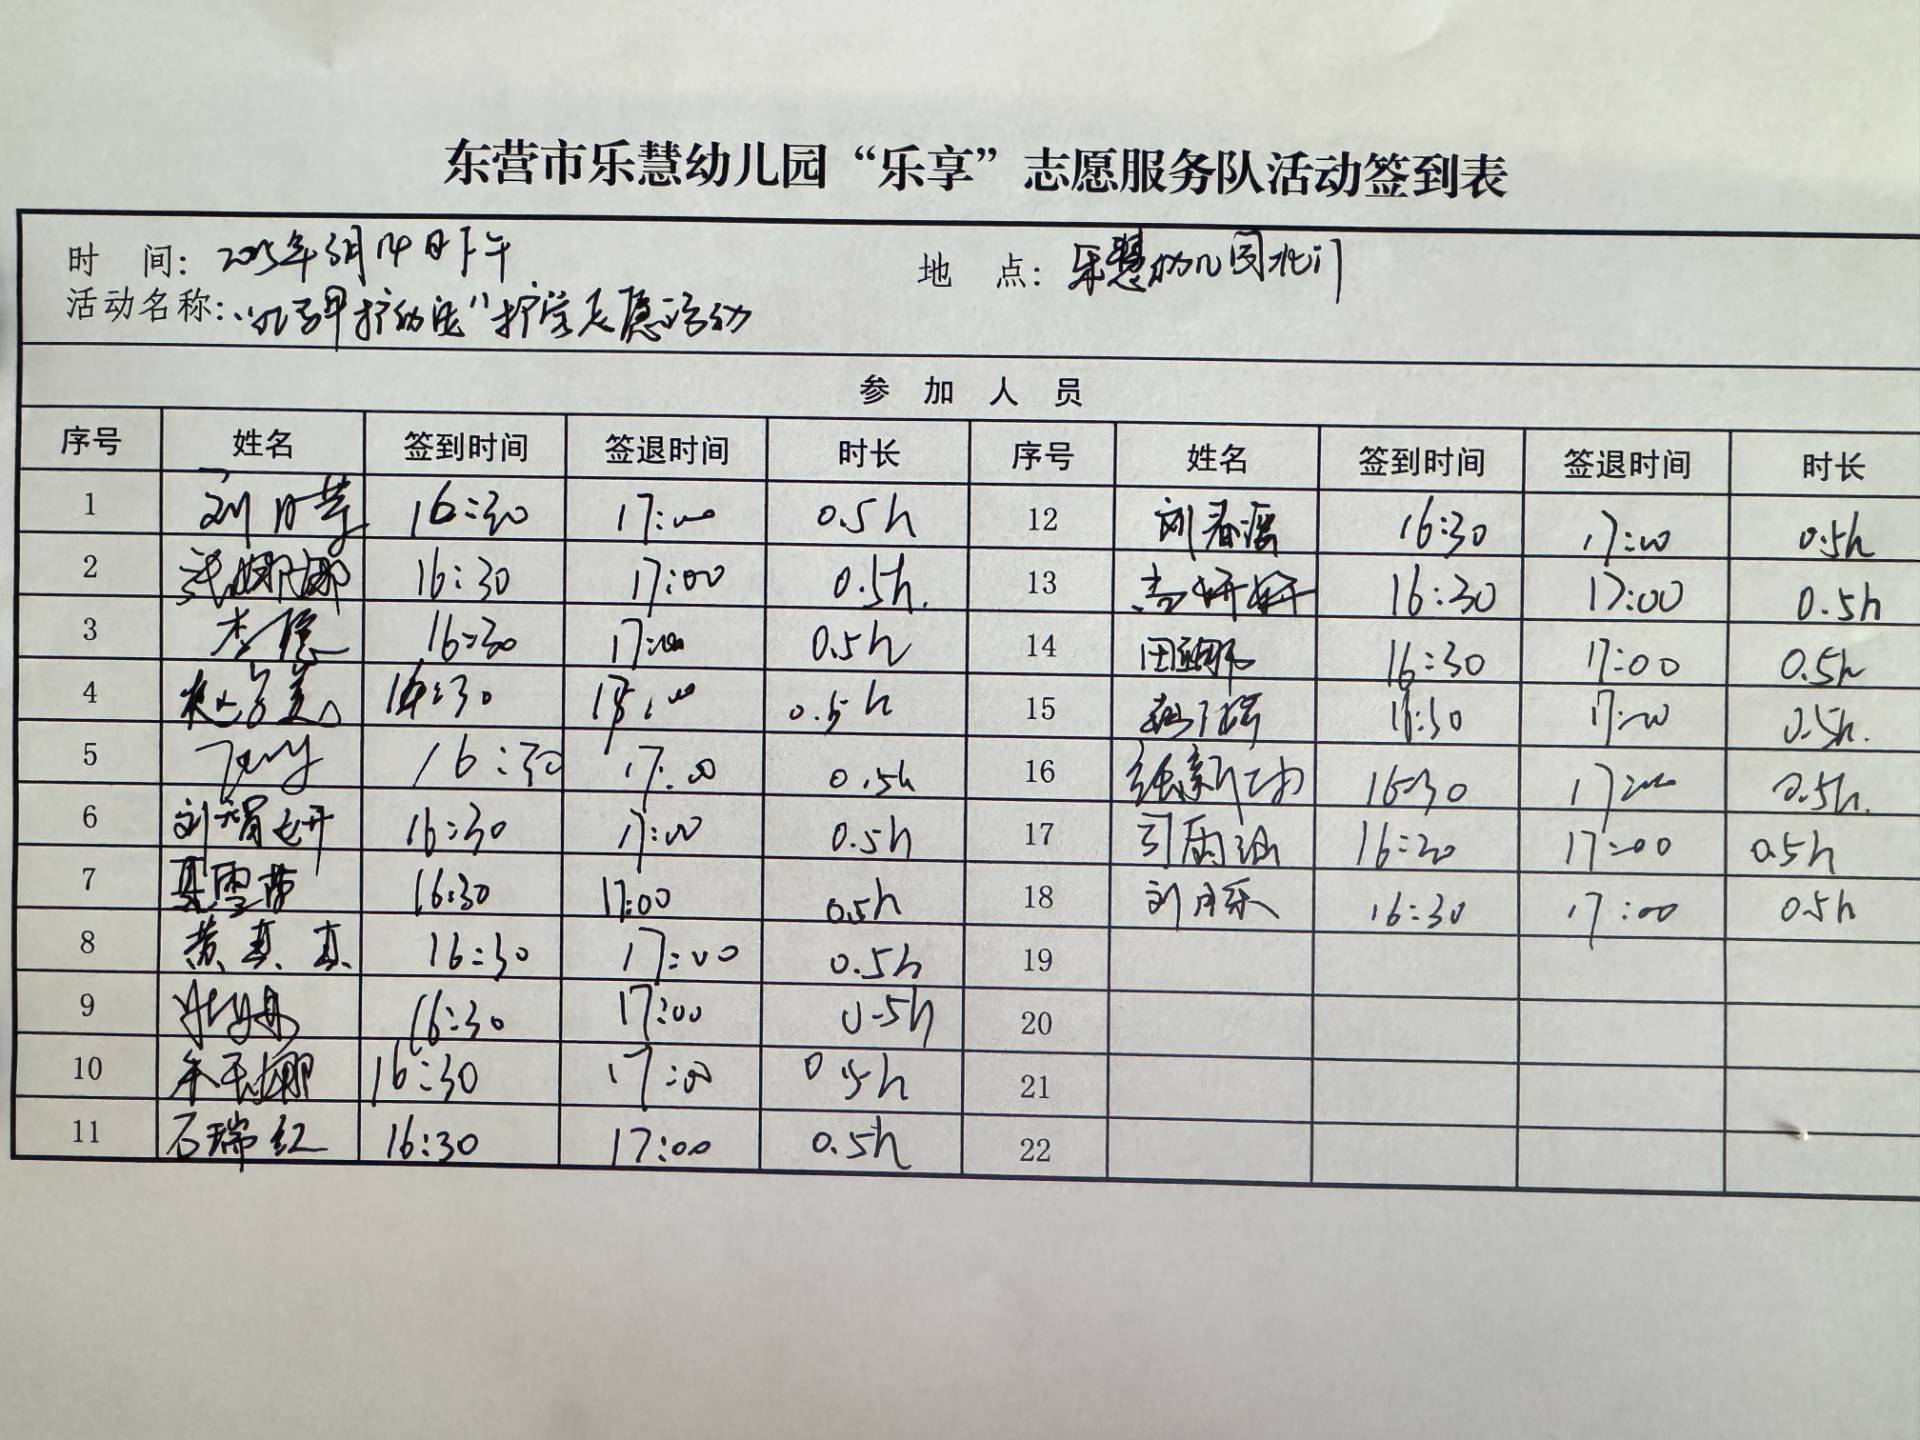 东营市乐慧幼儿园“乐享”志愿服务队活动签到表
时 间: 2025年3月14日下午 地 点: 乐慧幼儿园北门
活动名称: 护学志愿活动
参 加 人 员
序号 姓名 签到时间 签退时间 时长 序号 姓名 签到时间 签退时间 时长
1 16:30 17:00 0.5h 12 刘春 16:30 17:00 0.5h
2 娜娜 16:30 17:00 0.5h. 13 16:30 17:00 0.5h
3 李 16:30 17:00 0.5h 14 田 16:30 17:00 0.5h
4 16:30 0.5h 15 17:00 0.5h.
5 16:30 17:00 0.5h 16 16:30 17:00 0.5h.
6 刘 妍 16:30 17:00 0.5h 17 雨 17:00 0.5h
7 雪 16:30 17:00 0.5h 18 刘 乐 16:30 17:00 0.5h
8 黄真真 16:30 17:00 0.5h 19
9 16:30 17:00 0.5h 20
10 娜 16:30 17:00 0.5h 21
11 石瑞红 16:30 17:00 0.5h 22